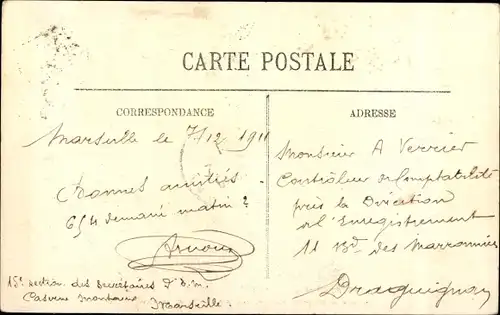 CARTE POSTALE
CORRESPONDANCE
Marseille le 7/12 1911
Bonnes amitiés
654 demain matin ?
Arnoux
15e section des Secrétaires d'
Caserne
Marseille.
ADRESSE
Monsieur A Verrier
Contrôleur de Comptabilité
près la Direction
de l'Enregistrement
11 Bd des Marronniers
Draguignan